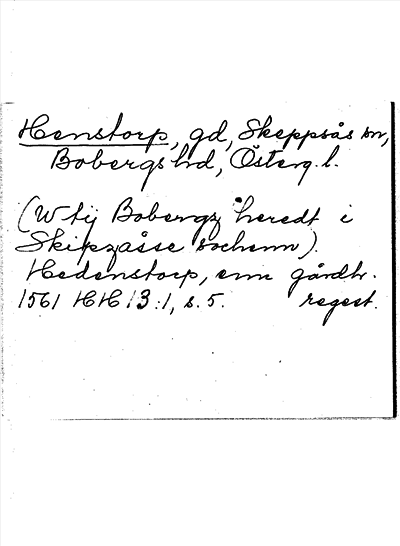 Henstorp, gd, Skeppsås sn,
Bobergs hd, Österg.l.
(W tij Bobergz heredt i
Skipzåsse sochenn).
Hedenstorp, enn gårdh.
1561 HH 13:1, s. 5. regest.